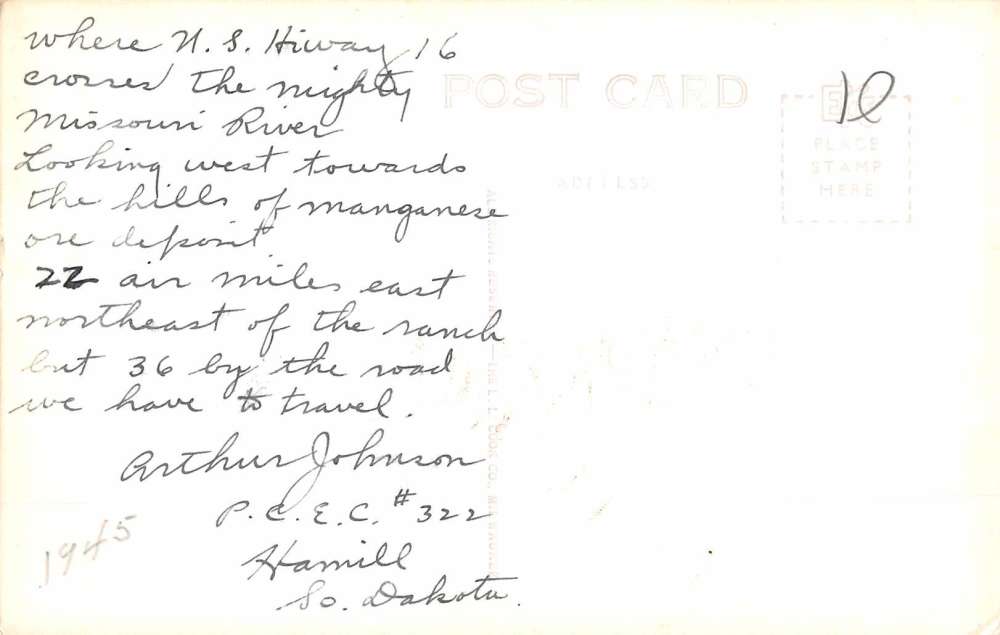 where U.S. Hiway 16
crosses the mighty
Missouri River
Looking west towards
the hills of manganese
ore deposit
22 air miles east
northeast of the ranch
but 36 by the road
we have to travel.
Arthur Johnson
P.C.E.C. #322
Hamill
So. Dakota.
1945
POST CARD
10
PLACE
STAMP
HERE
ADDRESS
—THE L. L. COOK CO.